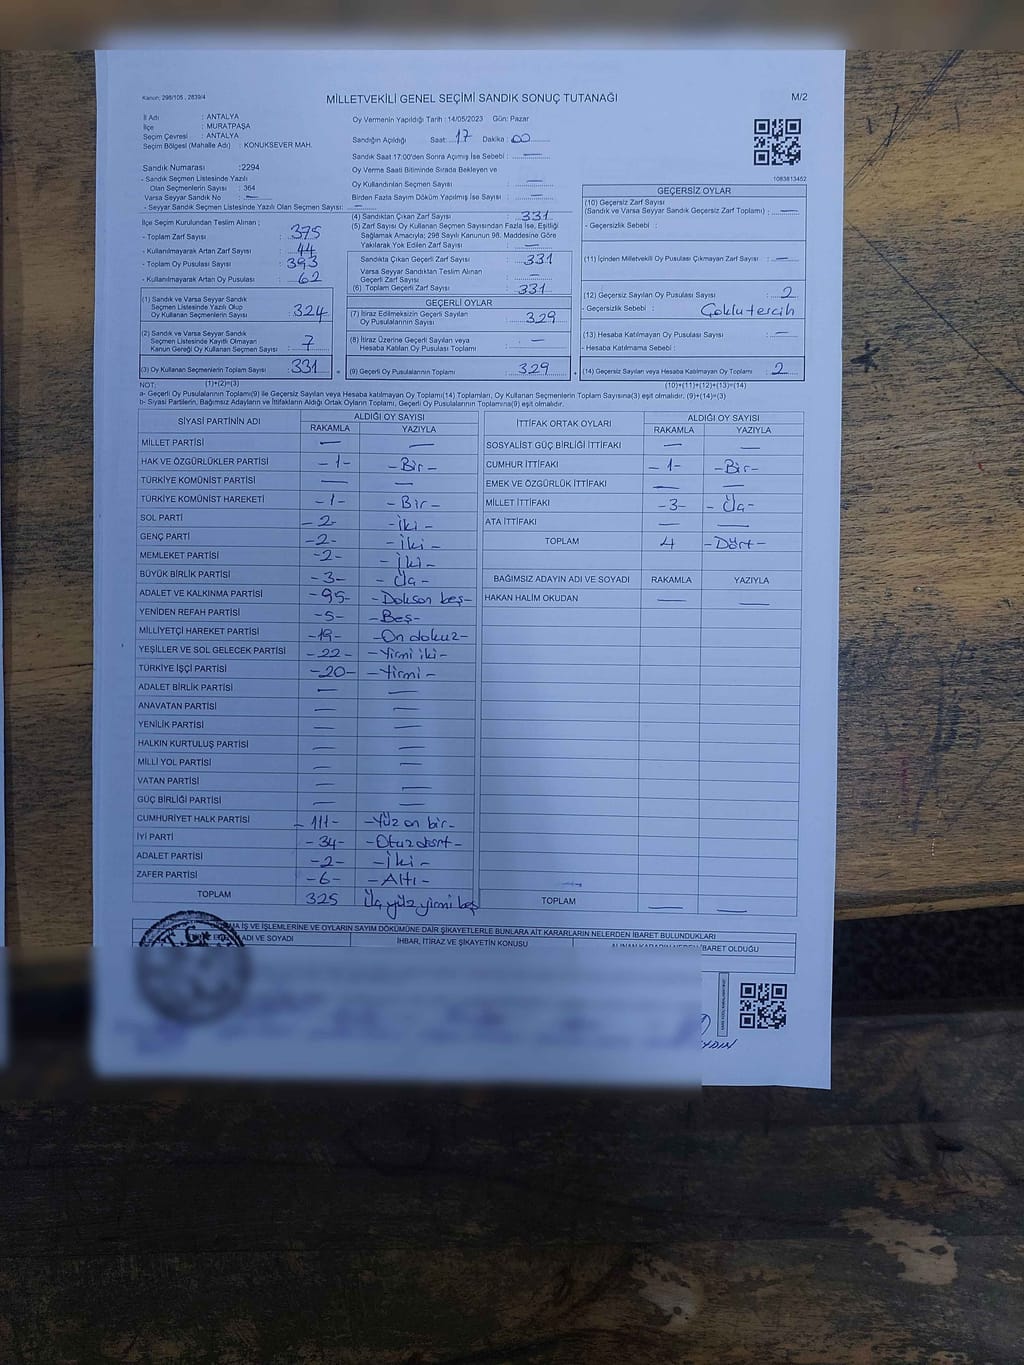 Kanun; 298/105 , 2839/4
MİLLETVEKİLİ GENEL SEÇİMİ SANDIK SONUÇ TUTANAĞI
M/2
İl Adı : ANTALYA
İlçe : MURATPAŞA
Seçim Çevresi : ANTALYA
Seçim Bölgesi (Mahalle Adı) : KONUKSEVER MAH.
Sandık Numarası :2294
- Sandık Seçmen Listesinde Yazılı
Olan Seçmenlerin Sayısı : 364
Varsa Seyyar Sandık No : —
- Seyyar Sandık Seçmen Listesinde Yazılı Olan Seçmen Sayısı: —
İlçe Seçim Kurulundan Teslim Alınan ;
- Toplam Zarf Sayısı : 375
- Kullanılmayarak Artan Zarf Sayısı : 44
- Toplam Oy Pusulası Sayısı : 393
- Kullanılmayarak Artan Oy Pusulası : 62
(1) Sandık ve Varsa Seyyar Sandık
Seçmen Listesinde Yazılı Olup
Oy Kullanan Seçmenlerin Sayısı : 324
(2) Sandık ve Varsa Seyyar Sandık
Seçmen Listesinde Kayıtlı Olmayan
Kanun Gereği Oy Kullanan Seçmen Sayısı : 7
(3) Oy Kullanan Seçmenlerin Toplam Sayısı : 331
(1)+(2)=(3)
Oy Vermenin Yapıldığı Tarih : 14/05/2023 Gün: Pazar
Sandığın Açıldığı Saat: 17 Dakika : 00
Sandık Saat 17:00'den Sonra Açımış İse Sebebi : —
Oy Verme Saati Bitiminde Sırada Bekleyen ve
Oy Kullandırılan Seçmen Sayısı : —
Birden Fazla Sayım Döküm Yapılmış İse Sayısı : —
(4) Sandıktan Çıkan Zarf Sayısı : 331
(5) Zarf Sayısı Oy Kullanan Seçmen Sayısından Fazla İse, Eşitliği
Sağlamak Amacıyla; 298 Sayılı Kanunun 98. Maddesine Göre
Yakılarak Yok Edilen Zarf Sayısı : —
Sandıkta Çıkan Geçerli Zarf Sayısı : 331
Varsa Seyyar Sandıktan Teslim Alınan
Geçerli Zarf Sayısı : —
(6) Toplam Geçerli Zarf Sayısı : 331
GEÇERLİ OYLAR
(7) İtiraz Edilmeksizin Geçerli Sayılan
Oy Pusulalarının Sayısı : 329
(8) İtiraz Üzerine Geçerli Sayılan veya
Hesaba Katılan Oy Pusulası Toplamı : —
(9) Geçerli Oy Pusulalarının Toplamı : 329
1083813452
GEÇERSİZ OYLAR
(10) Geçersiz Zarf Sayısı
(Sandık ve Varsa Seyyar Sandık Geçersiz Zarf Toplamı) : —
- Geçersizlik Sebebi :
(11) İçinden Milletvekili Oy Pusulası Çıkmayan Zarf Sayısı : —
(12) Geçersiz Sayılan Oy Pusulası Sayısı : 2
- Geçersizlik Sebebi : Çoklu tercih
(13) Hesaba Katılmayan Oy Pusulası Sayısı : —
- Hesaba Katılmama Sebebi :
(14) Geçersiz Sayılan veya Hesaba Katılmayan Oy Toplamı : 2
(10)+(11)+(12)+(13)=(14)
NOT:
a- Geçerli Oy Pusulalarının Toplamı(9) ile Geçersiz Sayılan veya Hesaba katılmayan Oy Toplamı(14) Toplamları, Oy Kullanan Seçmenlerin Toplam Sayısına(3) eşit olmalıdır. (9)+(14)=(3)
b- Siyasi Partilerin, Bağımsız Adayların ve İttifakların Aldığı Ortak Oyların Toplamı, Geçerli Oy Pusulalarının Toplamına(9) eşit olmalıdır.
SİYASİ PARTİNİN ADI ALDIĞI OY SAYISI
RAKAMLA YAZIYLA
MİLLET PARTİSİ — —
HAK VE ÖZGÜRLÜKLER PARTİSİ -1- -Bir-
TÜRKİYE KOMÜNİST PARTİSİ — —
TÜRKİYE KOMÜNİST HAREKETİ -1- -Bir-
SOL PARTİ -2- -İki-
GENÇ PARTİ -2- -İki-
MEMLEKET PARTİSİ -2- -İki-
BÜYÜK BİRLİK PARTİSİ -3- -Üç-
ADALET VE KALKINMA PARTİSİ -95- -Doksan beş-
YENİDEN REFAH PARTİSİ -5- -Beş-
MİLLİYETÇİ HAREKET PARTİSİ -19- -On dokuz-
YEŞİLLER VE SOL GELECEK PARTİSİ -22- -Yirmi iki-
TÜRKİYE İŞÇİ PARTİSİ -20- -Yirmi-
ADALET BİRLİK PARTİSİ — —
ANAVATAN PARTİSİ — —
YENİLİK PARTİSİ — —
HALKIN KURTULUŞ PARTİSİ — —
MİLLİ YOL PARTİSİ — —
VATAN PARTİSİ — —
GÜÇ BİRLİĞİ PARTİSİ — —
CUMHURİYET HALK PARTİSİ -111- -Yüz on bir-
İYİ PARTİ -34- -Otuz dört-
ADALET PARTİSİ -2- -İki-
ZAFER PARTİSİ -6- -Altı-
TOPLAM 325 Üç yüz yirmi beş
İTTİFAK ORTAK OYLARI ALDIĞI OY SAYISI
RAKAMLA YAZIYLA
SOSYALİST GÜÇ BİRLİĞİ İTTİFAKI — —
CUMHUR İTTİFAKI -1- -Bir-
EMEK VE ÖZGÜRLÜK İTTİFAKI — —
MİLLET İTTİFAKI -3- -Üç-
ATA İTTİFAKI — —
TOPLAM 4 -Dört-
BAĞIMSIZ ADAYIN ADI VE SOYADI RAKAMLA YAZIYLA
HAKAN HALİM OKUDAN — —
TOPLAM — —
İŞ VE İŞLEMLERİNE VE OYLARIN SAYIM DÖKÜMÜNE DAİR ŞİKAYETLERLE BUNLARA AİT KARARLARIN NELERDEN İBARET BULUNDUKLARI
ADI VE SOYADI İHBAR, İTİRAZ VE ŞİKAYETİN KONUSU ALINAN KARARIN NEDEN İBARET OLDUĞU